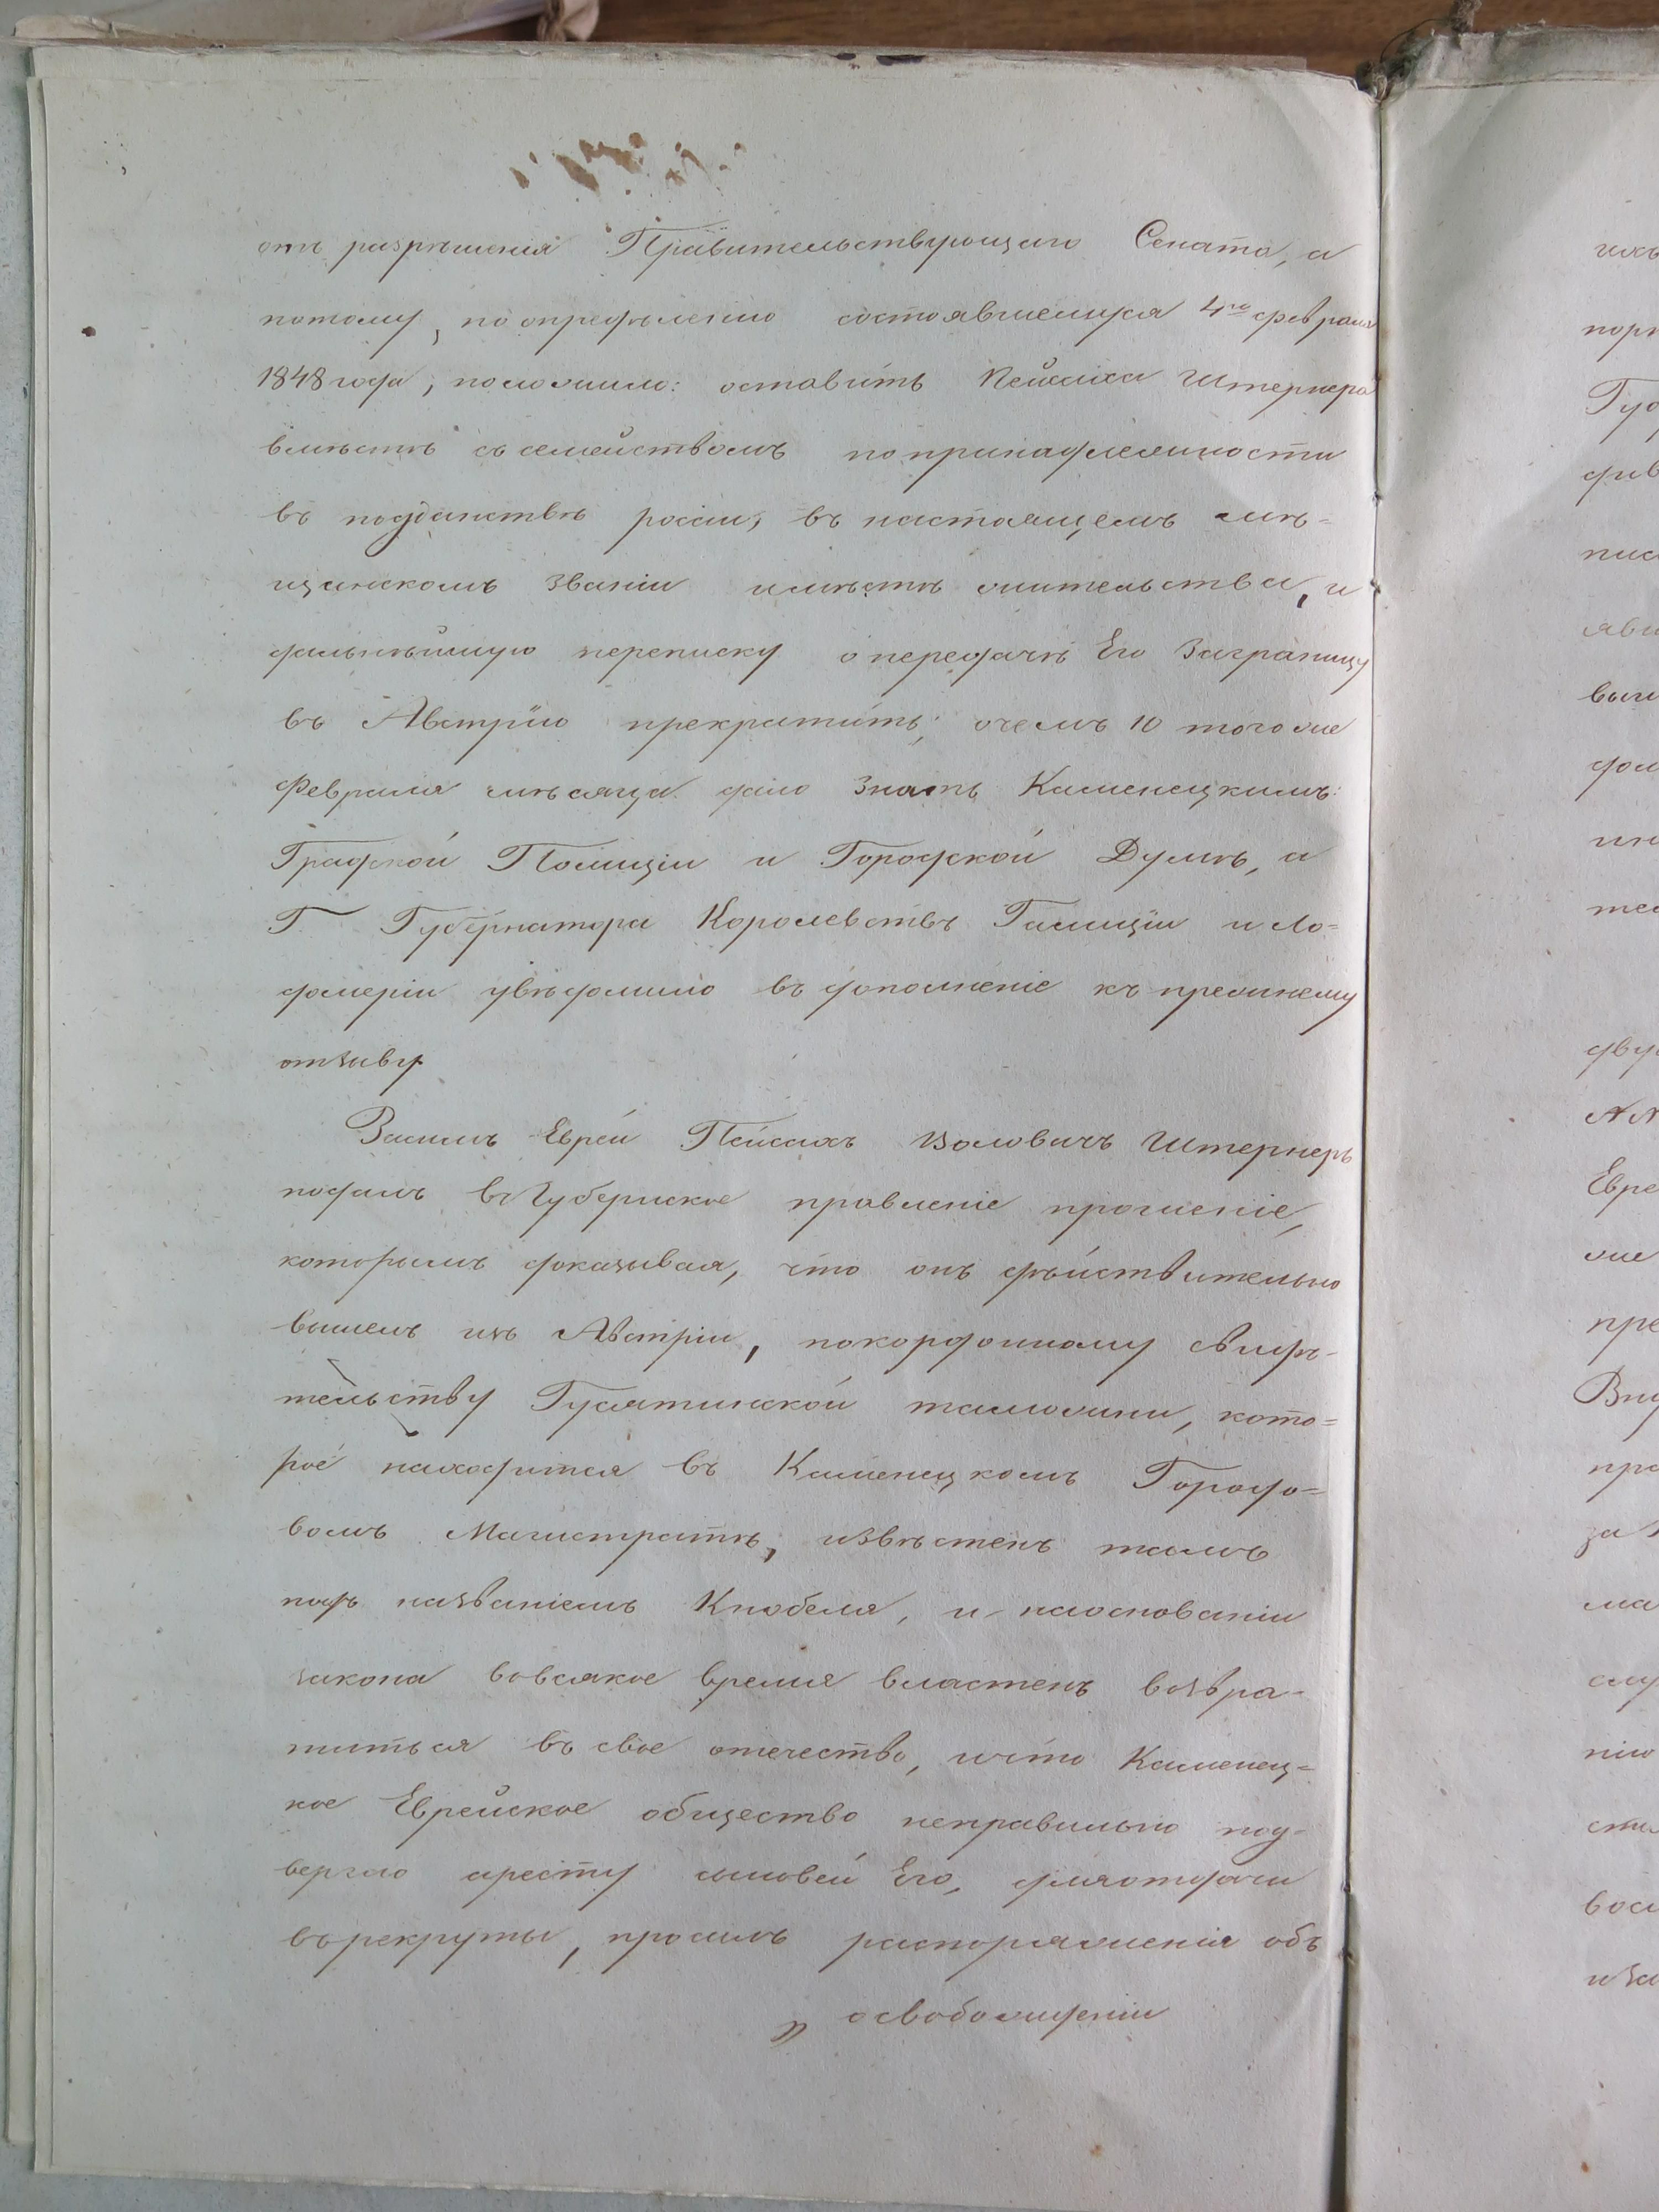 отъ разрѣшенія Правительствующаго Сената, а
потому, по опредѣленію состоявшемуся 4го февраля
1848 года, положило: оставить Пейсаха Штернера
вмѣстѣ съ семействомъ попринадлежности
въ подданствѣ россіи, въ настоящемъ мѣ=
щанскомъ званіи имѣстѣ жительства, и
дальнѣйшую переписку о передачѣ Его Заграницу
въ Австрію прекратить; очемъ 10 тогоже
Февраля мѣсяца дано знать Каменецкимъ:
Градской Полиціи и Городской Думѣ, а
Г. Губернатора Королевствъ Галиціи и Ло=
домеріи увѣдомило въ дополненіе къ прежнему
отзыву
Засимъ Еврей Пейсахъ Воловичъ Штернеръ
подалъ въ Губернское правленіе прошеніе,
которымъ доказывая, что онъ дѣйствительно
вышелъ изъ Австріи, покордонному свидѣ-
тельству Гусятинской таможни, кото=
рое находится въ Каменецкомъ Городо=
вомъ Магистратѣ, извѣстенъ тамъ
подъ названіемъ Кнобеля, и наоснованіи
закона вовсякое время властенъ возвра-
титься въ свое отечество, ичто Каменец=
кое Еврейское общество неправильно под-
вергло аресту сыновей Его, дляотдачи
врекруты, просилъ распоряженія объ
освобожденіи